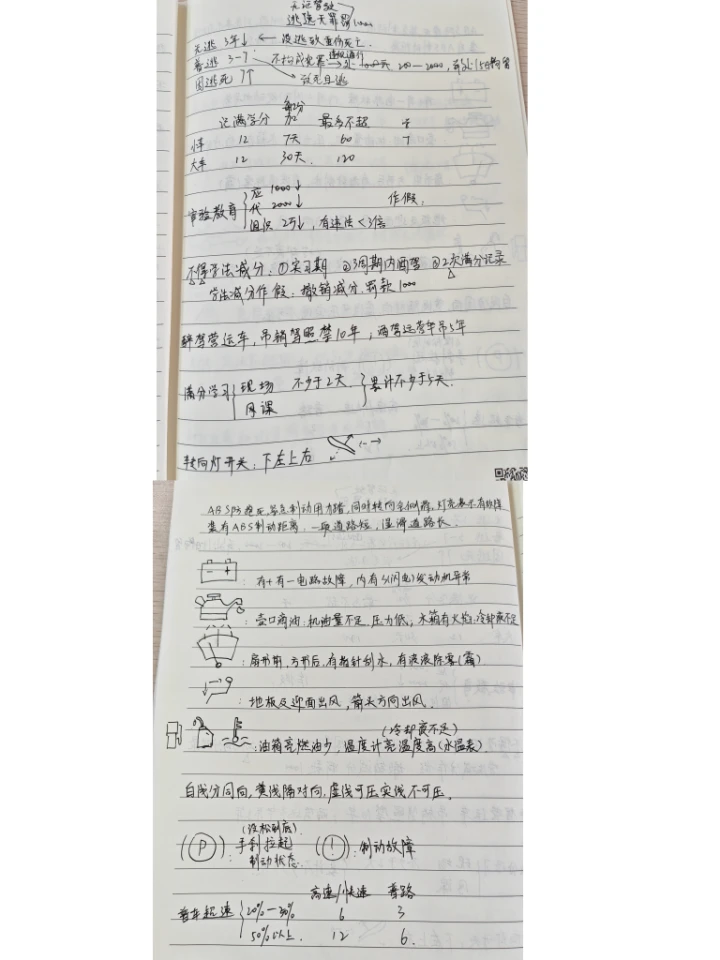 无证驾驶
逃逸无罪罚
无逃 3年↓ ← 没逃致重伤死亡.
普逃 3-7 不构成犯罪 → 200—2000, 可处15日拘留
因逃死 7↑ 致死且逃
每1分
记满学分 加 最多不超
小车 12 7天 60
大车 12 30天. 120
审验教育 应 1000↓ 作假,
代 2000↓
组织 2万↓, 有违法<3倍
不得学法减分: ①实习期 ②3周期内酒驾 ③2次满分记录
学法减分作假: 撤销减分.罚款1000
醉驾营运车, 吊销驾照.禁10年, 酒驾运营车吊5年
满分学习 现场 不少于2天. 累计不少于5天.
网课
转向灯开关: 下左上右
ABS防抱死,急踩制动用力踏,同时转向会侧滑,灯亮表示有故障
装有ABS制动距离: 一般道路短, 湿滑道路长.
- + : 有+有-电路故障, 内有S(闪电)发动机异常
: 壶口滴油: 机油量不足.压力低, 水箱有火焰:冷却液不足
: 扇形前,方形后,有指针刮水,有波浪除雾(霜)
: 地板及迎面出风, 箭头方向出风.
(冷却液不足)
: 油箱亮燃油少, 温度计亮温度高(水温表).
白线分同向, 黄线隔对向, 虚线可压实线不可压.
(没松到底)
(P) : 手刹拉起 (!) : 制动故障
制动状态.
高速/快速 普路
普车超速 20%—50% 6 3
50%以上 12 6.